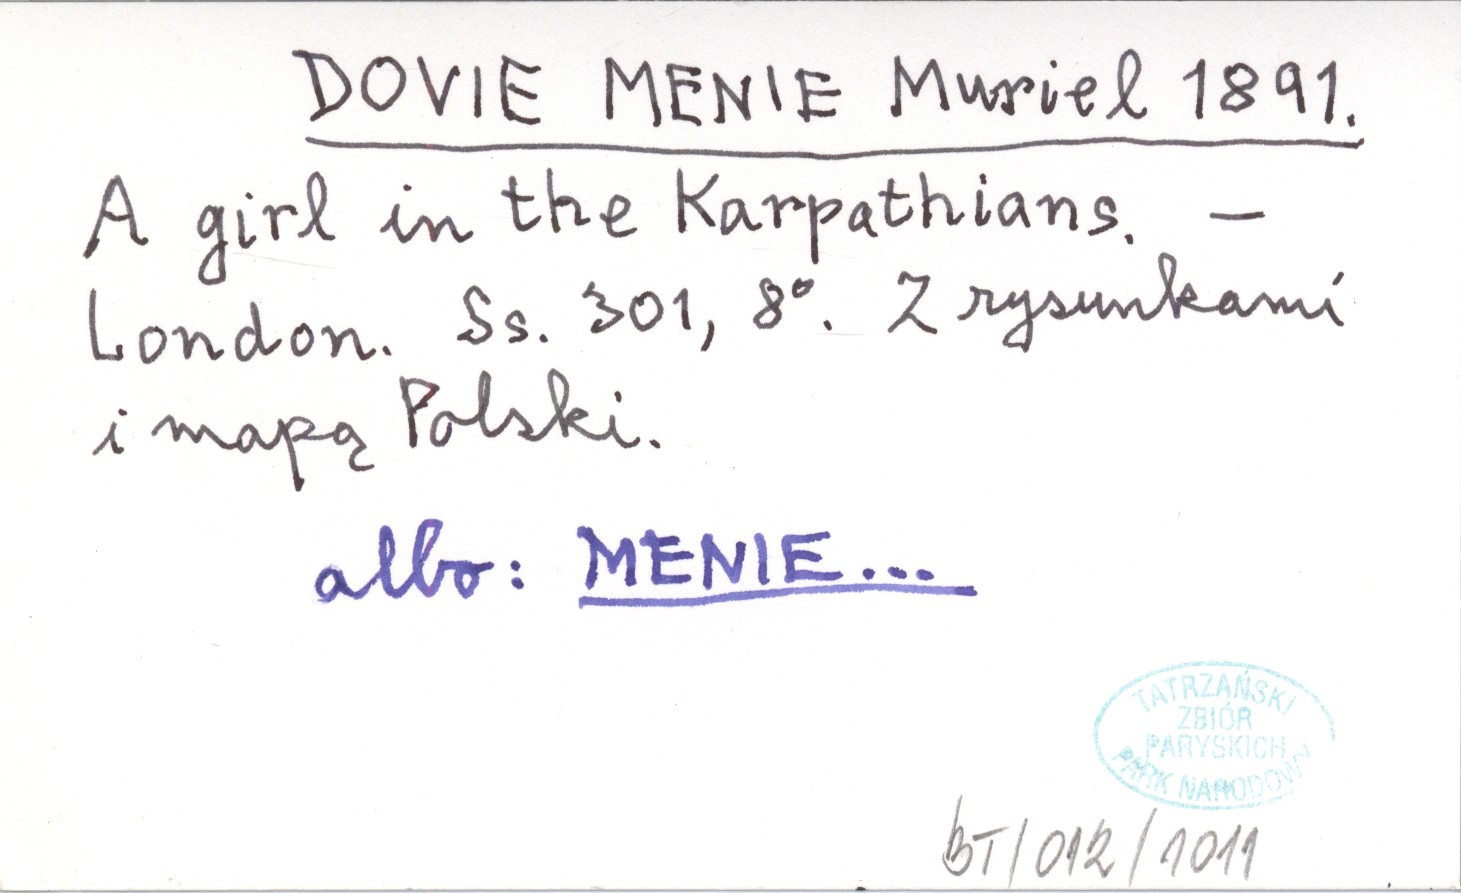 DOVIE MENIE Muriel 1891.
A girl in the Karpathians. —
London. Ss. 301, 8°. Z rysunkami
i mapą Polski.
albo: MENIE...
TATRZAŃSKI
ZBIÓR
PARYSKICH
PARK NARODOWY
BT/012/1011